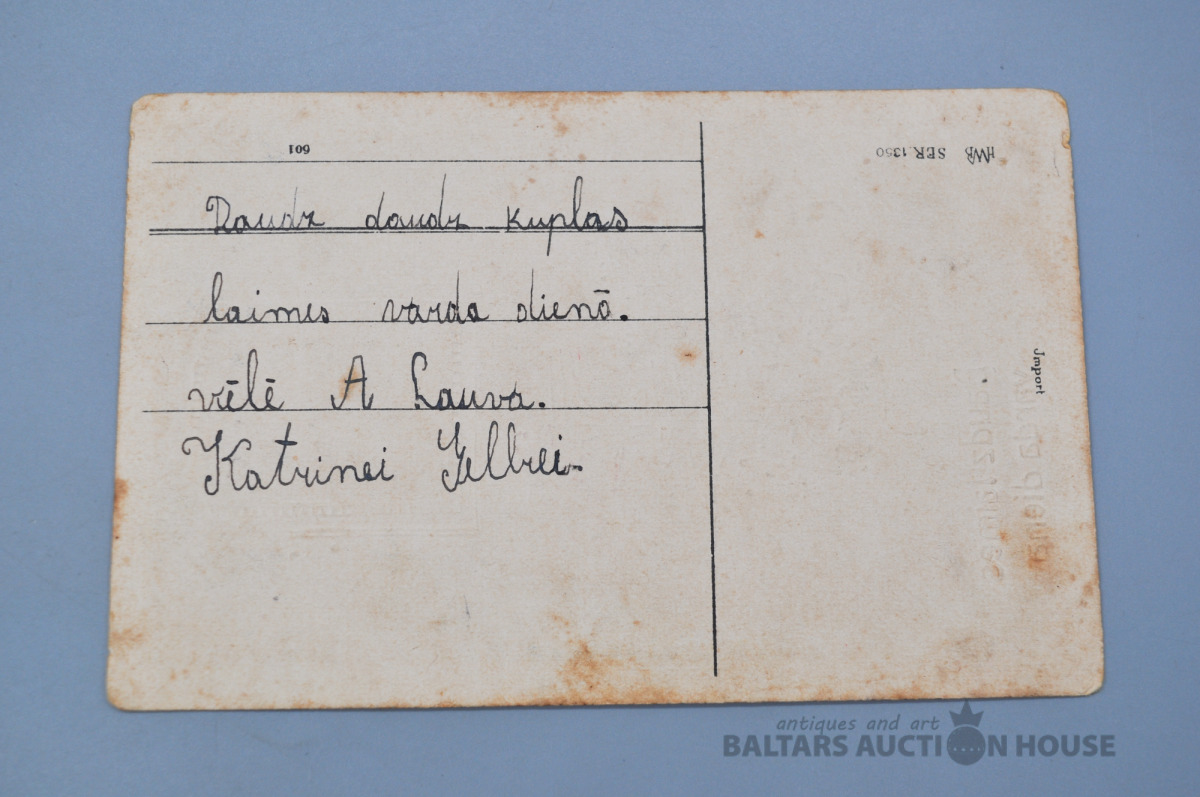 601
HWB SER. 1350
Daudz daudz kuplas
laimes varda dienā.
vēlē A Lauva.
Katrinei
Import
antiques and art
BALTARS AUCTION HOUSE